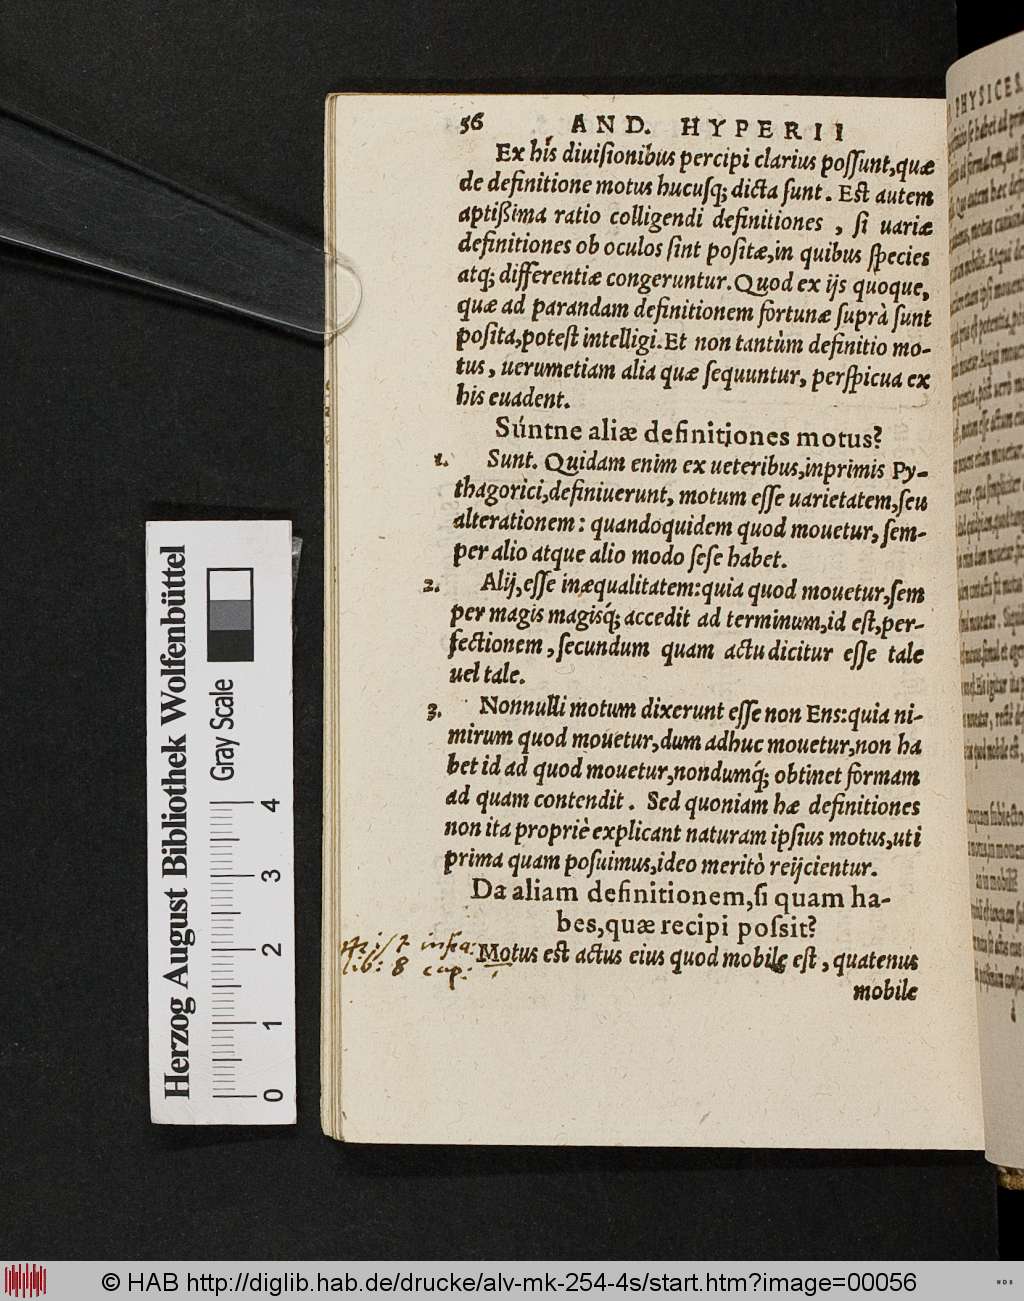 56 AND. HYPERII
Ex his diuisionibus percipi clarius possunt,quæ
de definitione motus hucusq; dicta sunt. Est autem
aptißima ratio colligendi definitiones , si uariæ
definitiones ob oculos sint positæ,in quibus species
atq; differentiæ congeruntur. Quod ex ijs quoque,
quæ ad parandam definitionem fortunæ suprà sunt
posita,potest intelligi. Et non tantùm definitio mo-
tus, uerumetiam alia quæ sequuntur, perspicua ex
his euadent.
Súntne aliæ definitiones motus?
1. Sunt. Quidam enim ex ueteribus,inprimis Py-
thagorici,definiuerunt, motum esse uarietatem,seu
alterationem: quandoquidem quod mouetur, sem-
per alio atque alio modo sese habet.
2. Alij,esse inæqualitatem:quia quod mouetur,sem
per magis magisq́; accedit ad terminum,id est,per-
fectionem, secundum quam actu dicitur esse tale
uel tale.
3. Nonnulli motum dixerunt esse non Ens:quia ni-
mirum quod mouetur,dum adhuc mouetur,non ha
bet id ad quod mouetur,nondumq́; obtinet formam
ad quam contendit. Sed quoniam hæ definitiones
non ita propriè explicant naturam ipsius motus,uti
prima quam posuimus,ideo meritò reijcientur.
Da aliam definitionem,si quam ha-
bes,quæ recipi possit?
infra:
lib: 8 cap:
Motus est actus eius quod mobile est, quatenus
mobile
PHYSICES.
Herzog August Bibliothek Wolfenbüttel
Gray Scale
0 1 2 3 4
© HAB http://diglib.hab.de/drucke/alv-mk-254-4s/start.htm?image=00056